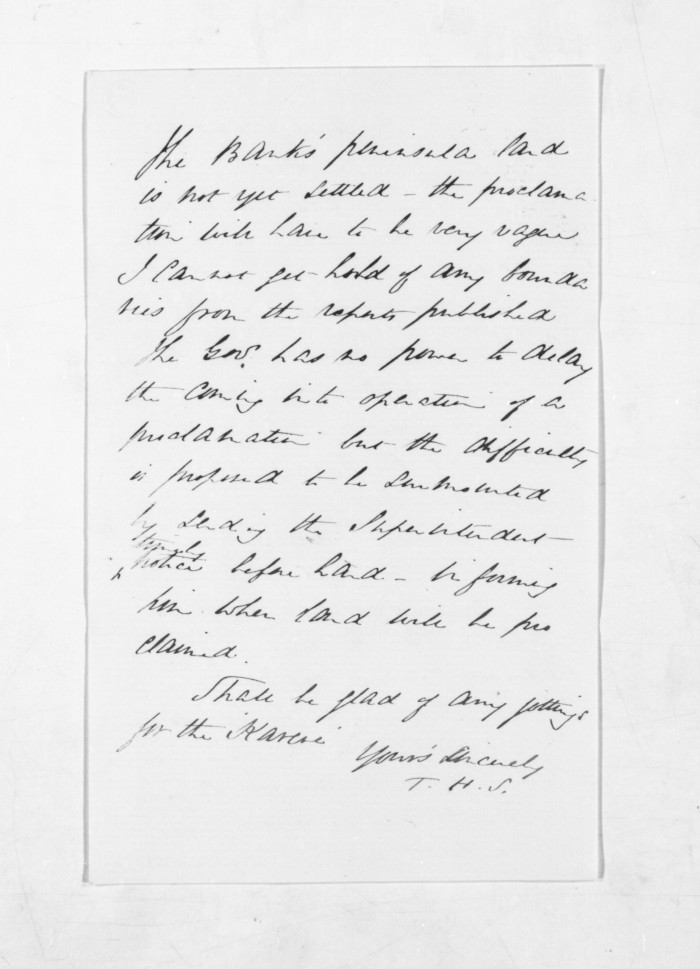 The Bank's peninsula land
is not yet settled – the proclama
tion will have to be very vague
I cannot get hold of any bounda
ries from the reports published
The Govr. has no power to delay
the coming into operation of a
proclamation but the difficulty
is proposed to be surmounted
by sending the Superintendent
timely
notice before hand – informing
him when land will be pro
claimed.
Shall be glad of any jottings
for the Karere
Yours sincerely
T. H. S.